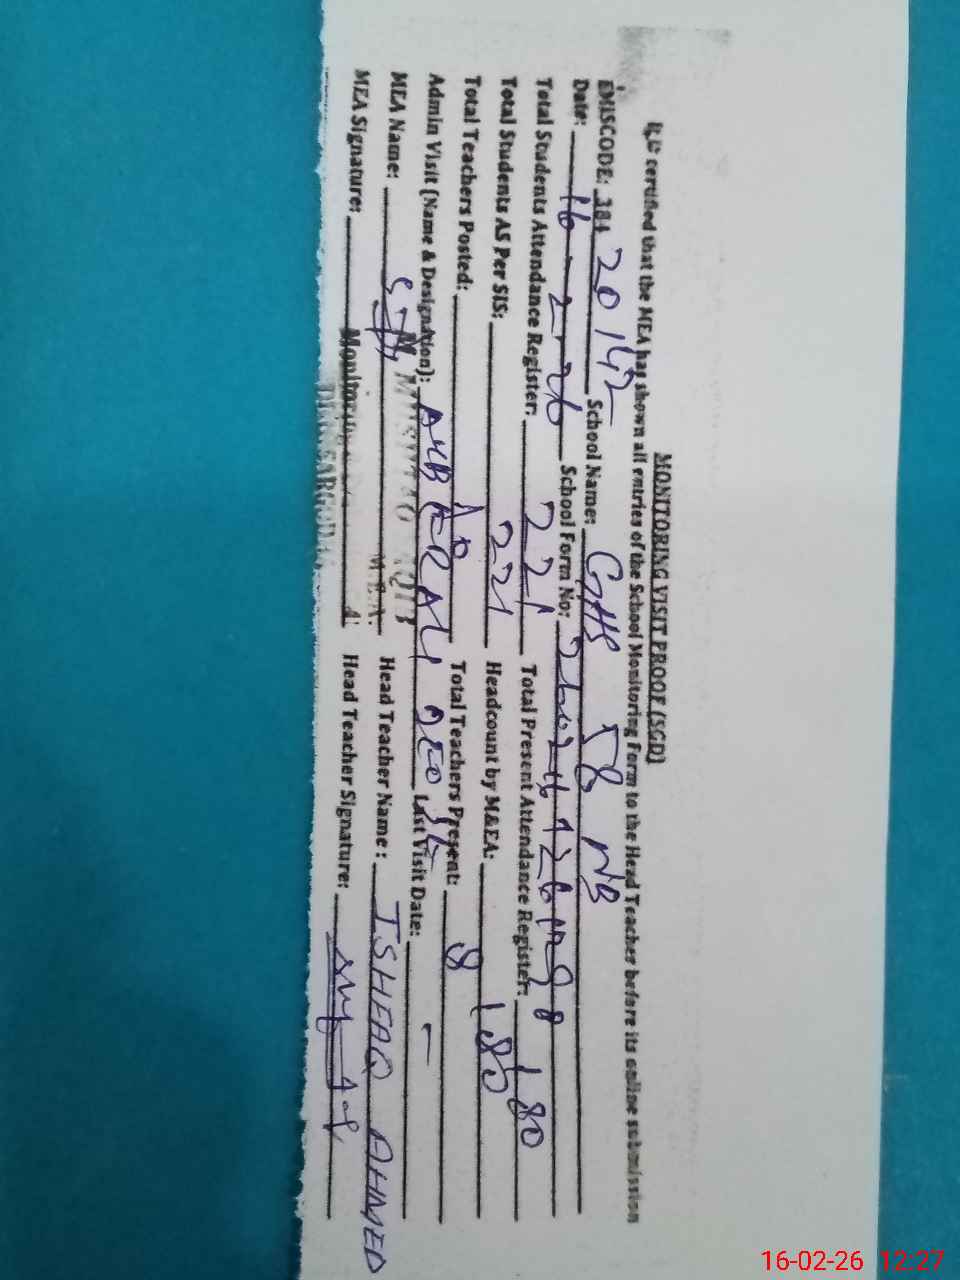 MONITORING VISIT PROOF (SGD)
certified that the MEA has shown all entries of the School Monitoring Form to the Head Teacher before its online submission
EMISCODE: 384 20142 School Name: GHS 58 NB
Date: 16-2-26 School Form No:
Total Students Attendance Register: 221 Total Present Attendance Register: 180
Total Students AS Per SIS: 221 Headcount by M&EA: 180
Total Teachers Posted: 10 Total Teachers Present: 8
Admin Visit (Name & Designation): AKBER ALI DEO SE Last Visit Date: —
MEA Name: Head Teacher Name: ISHFAQ AHMED
MEA Signature: Head Teacher Signature:
16-02-26 12:27